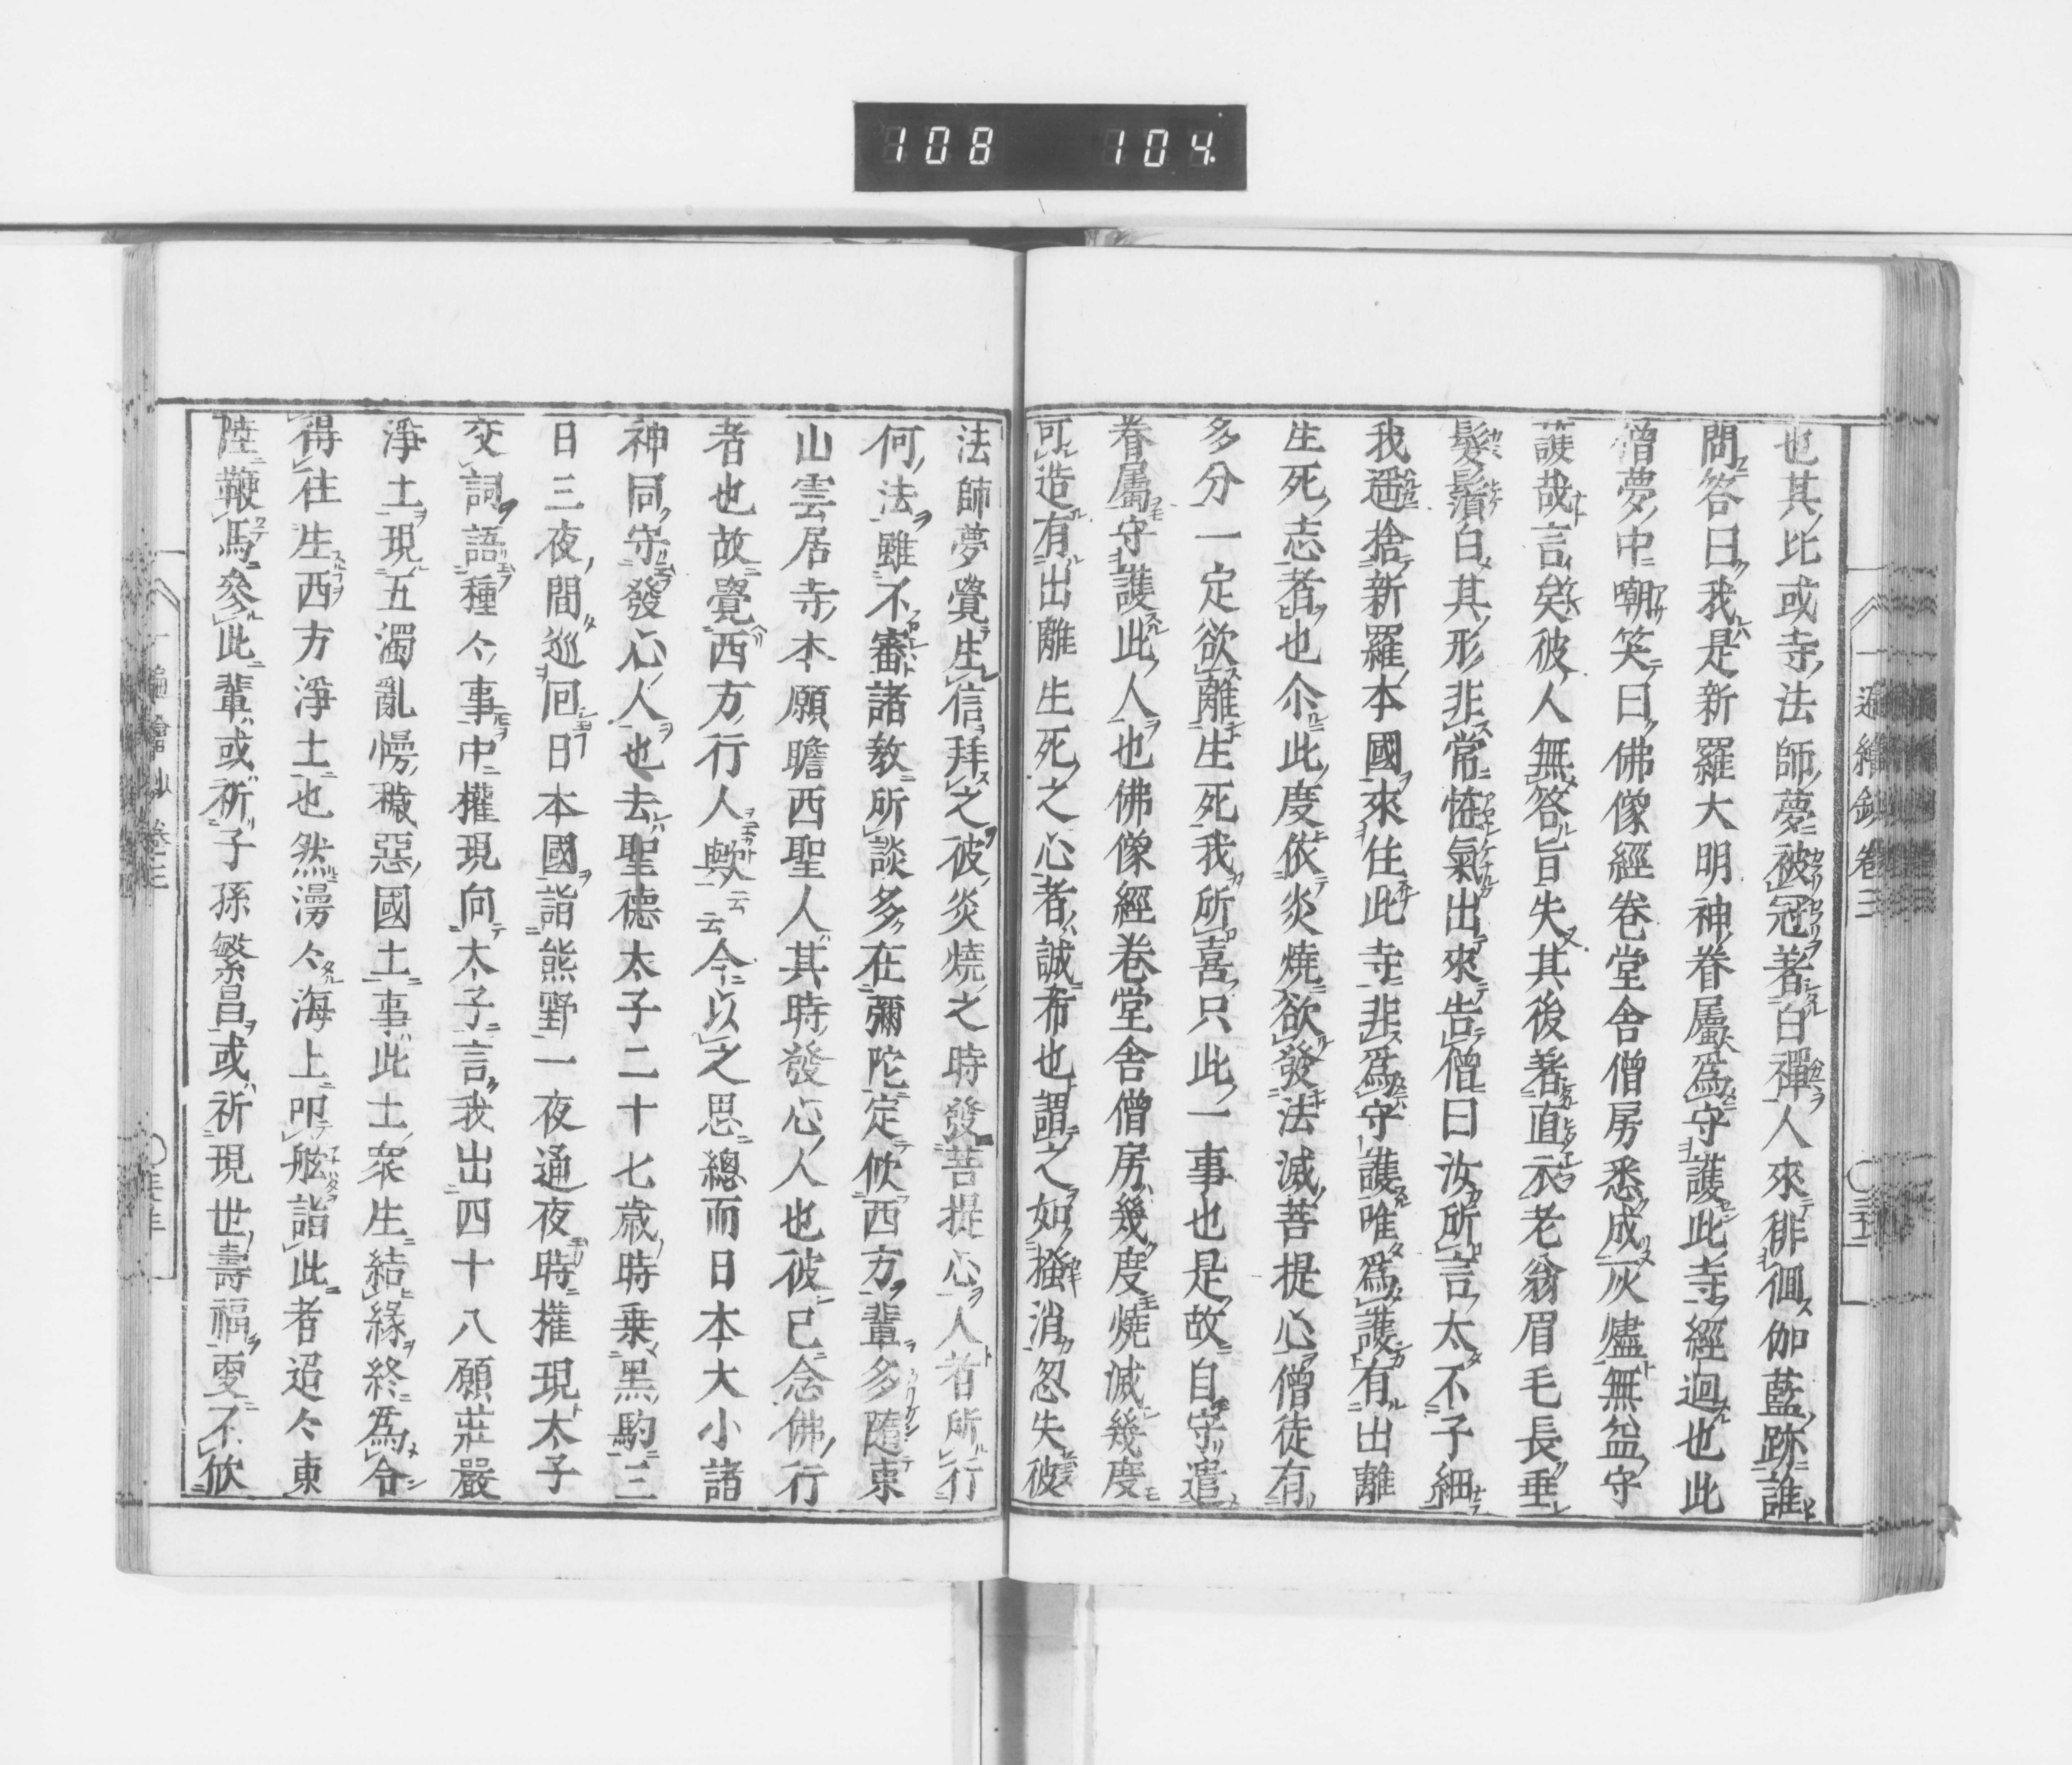 108 104
一遍繪鈔卷三
也其比或寺法師夢被冠著白襌人來徘徊伽藍跡誰
問答曰我是新羅大明神眷屬爲守護此寺經迴也此
僧夢中嘲笑曰佛像經卷堂舍僧房悉成灰燼無益守
護哉言矣彼人無答㫖失其後著直衣老翁眉毛長垂
髮鬚白其形非常恠氣出來告僧曰汝所言太不子細
我遥捨新羅本國來住此寺非爲守護唯爲護有出離
生死志者也尒此度依炎燒欲發法滅菩提心僧徒有
多分一定欲離生死我所喜只此一事也是故自守遣
眷屬守護此人也佛像經卷堂舍僧房幾度燒滅幾度
可造有出離生死之心者誠希也謂之如搔消忽失彼
法師夢覺生信拜之彼炎燒之時發菩提心人者所行
何法雖不審諸教所談多在彌陀定欣西方輩多隨東
山雲居寺本願瞻西聖人其時發心人也彼已念佛行
者也故覺西方行人歟云云今以之思總而日本大小諸
神同守發心人也去聖德太子二十七歳時乗黒駒三
日三夜間巡囘日本國詣熊野一夜通夜時權現太子
交詞語種々事中權現向太子言我出四十八願莊嚴
淨土現五濁亂慢穢惡國土事此土衆生結緣終爲令
得往生西方淨土也然漫々海上叩舷詣此者迢々東
陸鞭馬參此輩或祈子孫繁昌或祈現世壽福更不欣
一遍繪鈔卷三